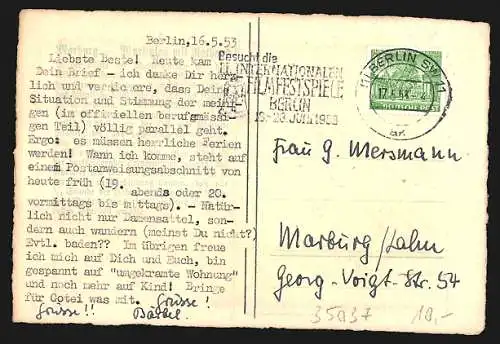 Berlin, 16.5.53
Liebste Beste! Heute kam
Dein Brief - ich danke Dir herz-
lich und versichere, dass Deine
Situation und Stimmung der meini-
gen (im offiziellen berufsmässi-
gen Teil) völlig parallel geht.
Ergo: es müssen herrliche Ferien
werden! Wann ich komme, steht auf
einem Postanweisungsabschnitt von
heute früh (19. abends oder 20.
vormittags bis mittags). - Natür-
lich nicht nur Damensattel, son-
dern auch wandern (meinst Du nicht?)
Evtl. baden?? Im übrigen freue
ich mich auf Dich und Euch, bin
gespannt auf "umgekramte Wohnung"
und noch mehr auf Kind! Bringe
für Gotei was mit. Grüsse!
Grüsse!! Bärbel.
Besucht die
III. INTERNATIONALEN
FILMFESTSPIELE
BERLIN
18.-28. JUNI 1953
BERLIN SW 11
17.5.53
Frau G. Mersmann
Marburg/Lahn
Georg-Voigt-Str. 54
35037
10,-